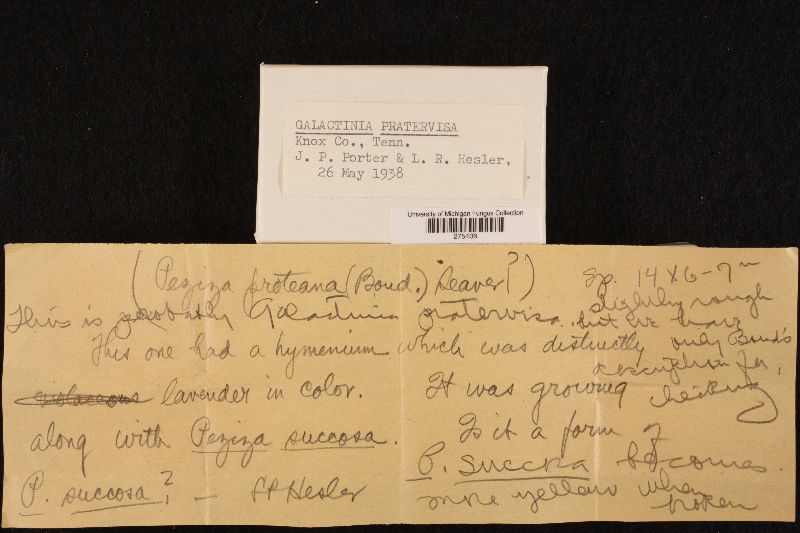 GALACTINIA PRATERVISA
Knox Co., Tenn.
J. P. Porter & L. R. Hesler,
26 May 1938
University of Michigan Fungus Collection
275436
(Peziza proteana (Boud.) Seaver?)
Sp. 14 x 6-7
slightly rough
This is probably Galactinia pratervisa. but we have
only Boud's
description for
checking
This one had a hymenium which was distinctly
lavender in color. It was growing
along with Peziza succosa. Is it a form of
P. succosa? — Hesler
P. succosa becomes
more yellow when
broken